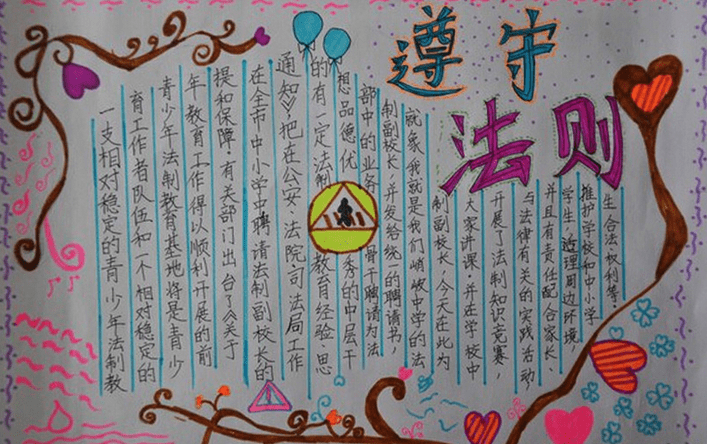 遵守
法则
一支相对稳定的青少年法制教
育工作者队伍和一个相对稳定的
青少年法制教育基地将是青少
年教育工作得以顺利开展的前
提和保障,有关部门出台了《关于
在全市中小学中聘请法制副校长的
通知》,把在公安、法院司法局工作
的有一定法制教育经验、思
想品德优秀的中层干
部中的业务骨干聘请为法
制副校长,并发给统一的聘请书,
就象我就是我们峭岐中学的法
制副校长,今天在此为
大家讲课,并在学校中
开展了法制知识竞赛,
与法律有关的实践活动
并且有责任配合家长、
学生,治理周边环境,
维护学校和中小学
生合法权利等